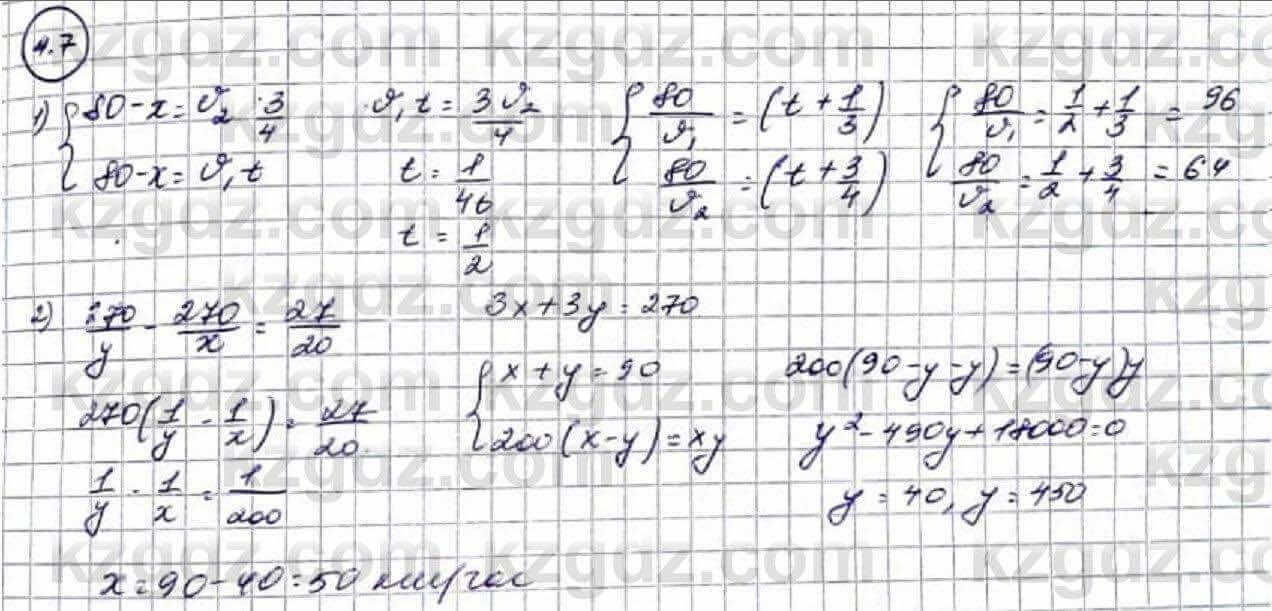 4.7
1) { 80-x = v₂ · 3/4
80-x = v₁t
v₁t = 3v₂/4
t = 1/46
t = 1/2
{ 80/v₁ = (t + 1/3)
80/v₂ = (t + 3/4)
{ 80/v₁ = 1/2 + 1/3 = 96
80/v₂ = 1/2 + 3/4 = 64
2) 270/y - 270/x = 27/20
270(1/y - 1/x) = 27/20
1/y - 1/x = 1/200
3x + 3y = 270
{ x + y = 90
200(x-y) = xy
200(90-y-y) = (90-y)y
y² - 490y + 18000 = 0
y = 40, y = 450
x = 90 - 40 = 50 км/час
kzgdz.com